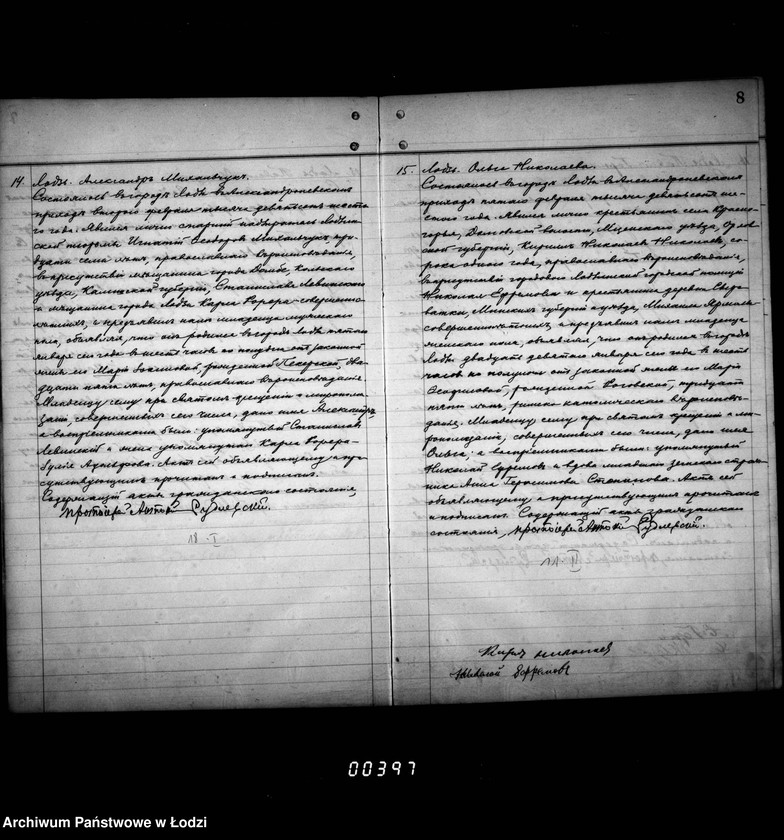 14. Лодзь. Александръ Миханьчукъ.
Состоялось въ городѣ Лодзи въ Александроневскомъ
приходѣ второго февраля тысяча девятьсотъ шеста-
го года. Явился лично старшій надзиратель Лодзин-
ской тюрьмы Игнатій Ѳеодоровъ Миханьчукъ,
дцати семи лѣтъ, православнаго вѣроисповѣданія,
въ присутствіи мѣщанина города Домбе, Кольскаго
уѣзда, Калишской губерніи, Станислава Левинскаго
и мѣщанина города Лодзи Карла совершенно-
лѣтнихъ, и предъявилъ намъ младенца мужескаго
пола, объявляя, что онъ родился въ городѣ Лодзи пятаго
января сего года въ шесть часовъ по полудни отъ законной
жены его Маріи рожденной два-
дцати пяти лѣтъ, православнаго вѣроисповѣданія.
Младенцу сему при святомъ крещеніи и мѵропома-
заніи, совершенныхъ сего числа, дано имя Александръ,
а воспріемниками были: упомянутый Станиславъ
Левинскій и жена упомянутаго Карла
Актъ сей объявляющему и при-
сутствующимъ прочитанъ и подписанъ.
Содержащій акты гражданскаго состоянія,
протоіерей Антоній Рудлевскій.
8
15. Лодзь. Ольга Николаева.
Состоялось въ городѣ Лодзи въ Александроневскомъ
приходѣ пятаго февраля тысяча девятьсотъ ше-
стого года. Явился лично крестьянинъ села
волости, Мценскаго уѣзда, Орлов-
ской губерніи, Кириллъ Николаевъ Николаевъ, со-
рока одного года, православнаго вѣроисповѣданія,
въ присутствіи городового Лодзинской городской полиціи
Николая Ефремова и крестьянина деревни
Минской губерніи и уѣзда, Михаила
совершеннолѣтнихъ и предъявилъ намъ младенца
женскаго пола, объявляя, что она родилась въ городѣ
Лодзи двадцать девятаго января сего года въ шесть
часовъ по полуночи отъ законной жены его Маріи
рожденной Роговской, тридцати
пяти лѣтъ, римско-католическаго вѣроисповѣ-
данія. Младенцу сему при святомъ крещеніи и мѵ-
ропомазаніи, совершенныхъ сего числа, дано имя
Ольга, а воспріемниками были: упомянутый
Николай Ефремовъ и вдова младшаго земскаго страж-
ника Анна Герасимова Степанова. Актъ сей
объявляющему и присутствующимъ прочитанъ
и подписанъ. Содержащій акты гражданскаго
состоянія, протоіерей Антоній Рудлевскій.
Кирилъ Николаевъ
Николай Ефремовъ
00397
Archiwum Państwowe w Łodzi